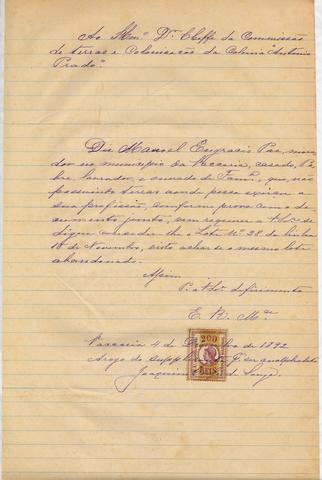 Ao Ilmo. Dr. Cheffe da Commissão
de terras e Colonisação da Colonia "Antonio
Prado".
Diz Manoel Eugracio Paz, mora-
dor no municipio da Vaccaria, casado,
lavrador, e curado de que, não
possuindo terras aonde possa exercer a
sua profissão, conforme prova com o do-
cumento junto, vem requerer a
digne conceder-lhe o Lote Nº 28 da linha
18 de Novembro, visto achar-se o mesmo lote
abandonado.
Assim
P. a deferimento
E. R. Mce.
Vaccaria 4 de de 1892
Arogo do supplicante por ser analphabeto
Joaquim de Souza
200
REIS